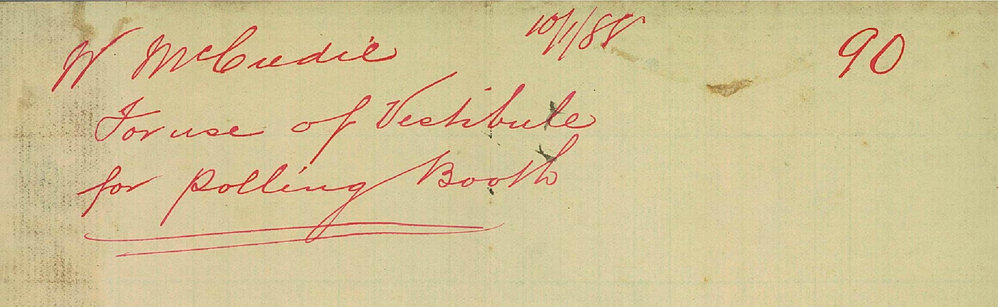 W McCredie 10/1/88 90
For use of Vestibule
for polling Booth